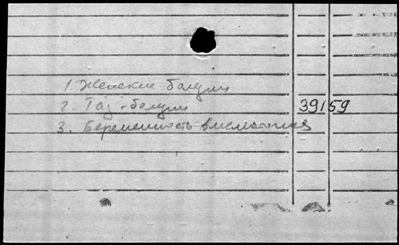 1. Женские болезни
2. Таз - болезни
39159
3. Беременность внематочная